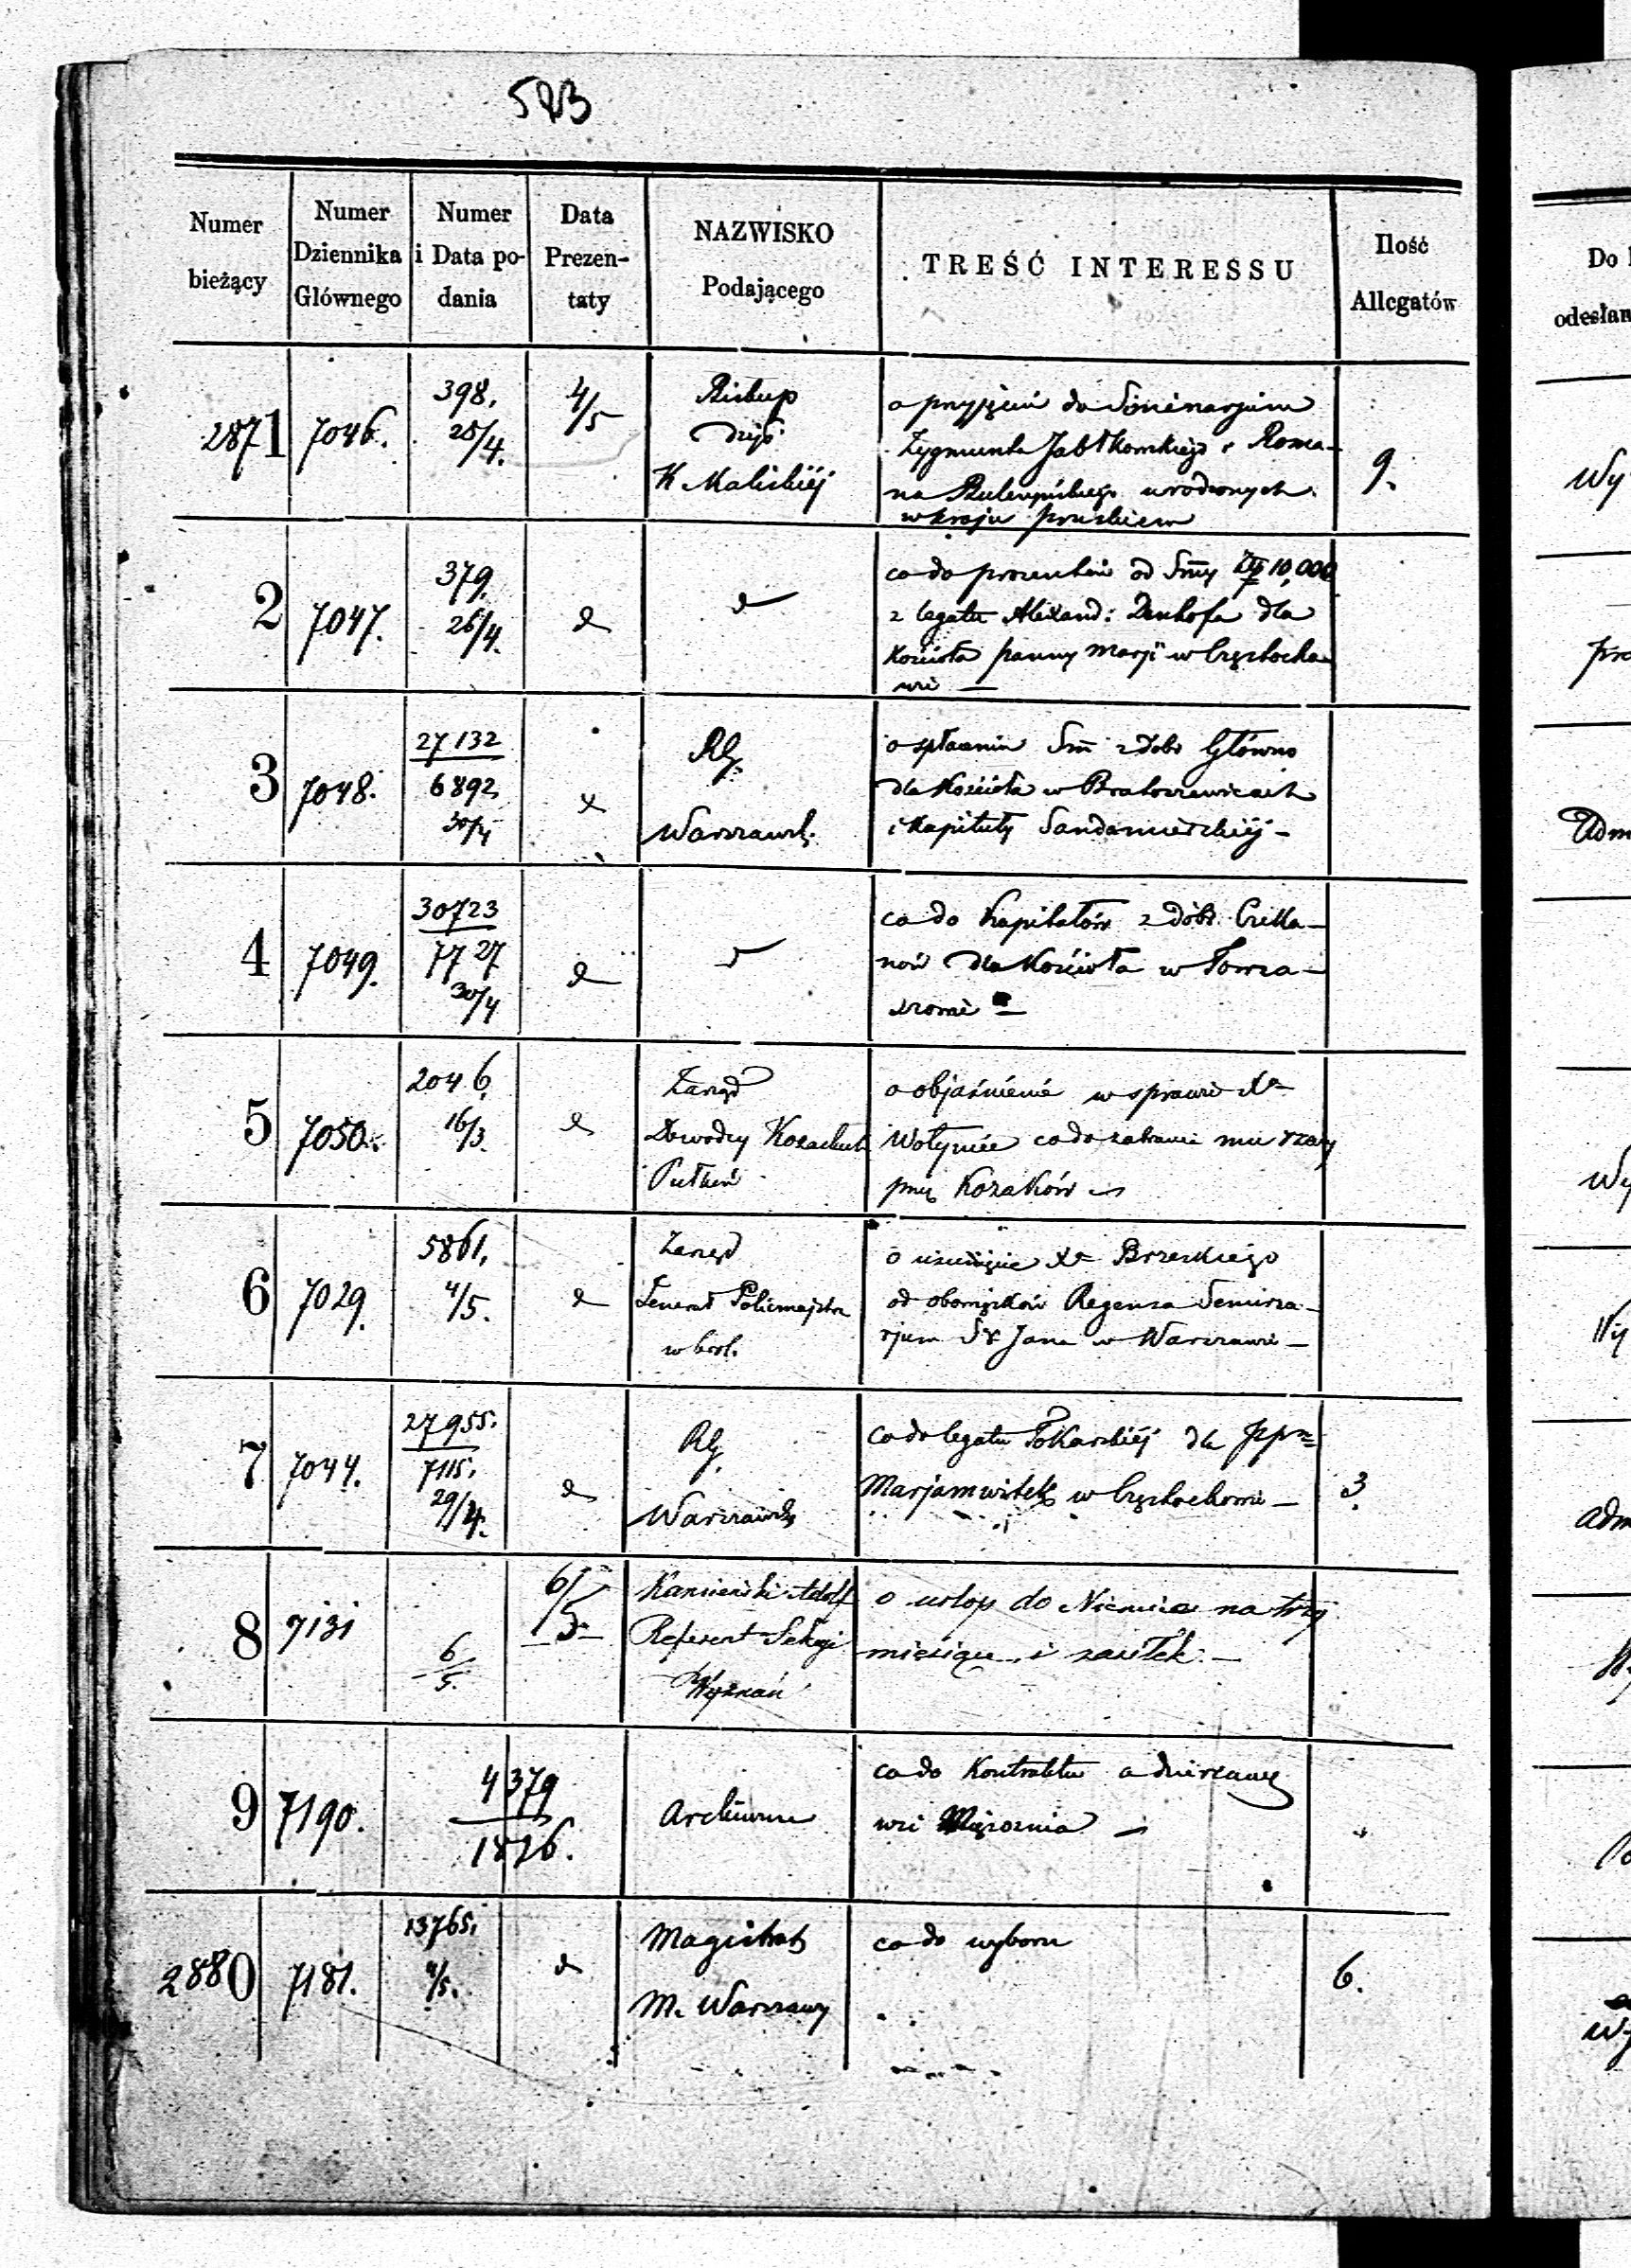 523
Numer bieżący
Numer Dziennika Głównego
Numer i Data podania
Data Prezentaty
NAZWISKO Podającego
TREŚĆ INTERESSU
Ilość Allegatów
2871
7046.
398.
28/4.
4/5
Biskup
Dzyó:
K. Kaliskiéj
o przyjęciu do Seminarjum
Zygmunta Jabłkowskiego i Roma-
na urodzonych
w kraju pruskiem
9.
2
7047.
379.
26/4.
co do procentów od Smy Zł 10,000
z legatu Alexand: Denhofa dla
Kościoła panny Marji w Częstocho-
wie —
3
7048.
27132
6892,
30/4
RG.
Warszawsk.
o spłaceniu Sm z dóbr Główno
dla Kościoła w Bratoszewicach
i Kapituły Sandomierskiéj —
4
7049.
30723
7727
30/4
co do Kapitałów z dóbr
nów dla Kościoła w Toma-
szowie —
5
7050.
2046.
16/3.
Zarząd
Dowódcy Kozackich
Pułków
o objaśnienie w sprawie Xa
Wołyńca co do zabrania mu rzeczy
przez Kozaków
6
7029.
5861.
4/5.
Zarząd
Generał Policmajstra
w Król.
o usunięcie Xa Brzeskiego
od obowiązków Regensa Semina-
rjum Sw Jana w Warszawie —
7
7044.
27955.
7115.
29/4.
RG.
Warszawsk
co do legatu Tokarskiéj dla ppn
Marjawitek w Częstochowie —
3
8
7131
6/5.
6/5
Kamieński Adolf
Referent Sekcyi
Wyznań
o urlop do Niemiec na trzy
miesiące i zasiłek. —
9
7190.
4379
1876.
Archiwum
co do Kontraktu o dzierżawę
wsi —
2880
7181.
13765.
4/5.
Magistrat
M. Warszawy
co do wyboru
6.
Do
odesłan
Wy
Adm
Wy
Wy
adm